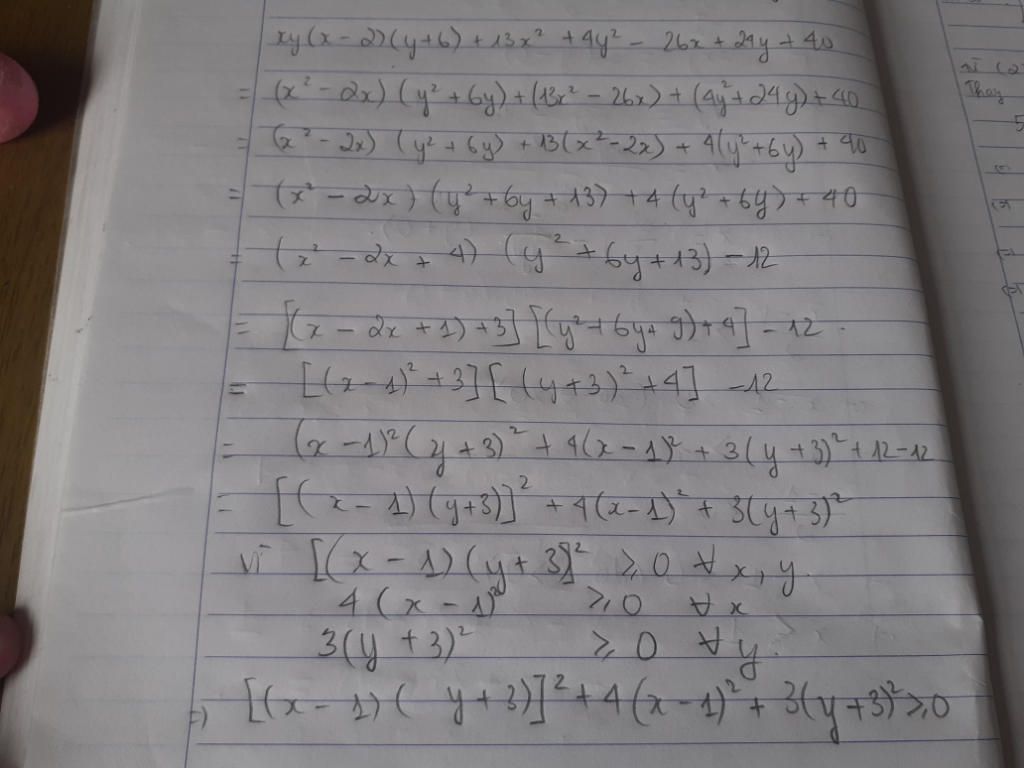 xy(x - 2)(y+6) + 13x² + 4y² - 26x + 24y + 40
= (x² - 2x) (y² + 6y) + (13x² - 26x) + (4y² + 24y) + 40
= (x² - 2x) (y² + 6y) + 13(x² - 2x) + 4(y² + 6y) + 40
= (x² - 2x) (y² + 6y + 13) + 4(y² + 6y) + 40
= (x² - 2x + 4) (y² + 6y + 13) - 12
= [(x - 2x + 1) + 3] [(y² + 6y + 9) + 4] - 12
= [(x - 1)² + 3] [(y + 3)² + 4] - 12
= (x - 1)² (y + 3)² + 4(x - 1)² + 3(y + 3)² + 12 - 12
= [(x - 1) (y + 3)]² + 4(x - 1)² + 3(y + 3)²
vì [(x - 1) (y + 3]² ≥ 0 ∀ x, y.
4 (x - 1)² ≥ 0 ∀ x
3(y + 3)² ≥ 0 ∀ y.
=> [(x - 1) (y + 3)]² + 4(x - 1)² + 3(y + 3)² ≥ 0
Thay